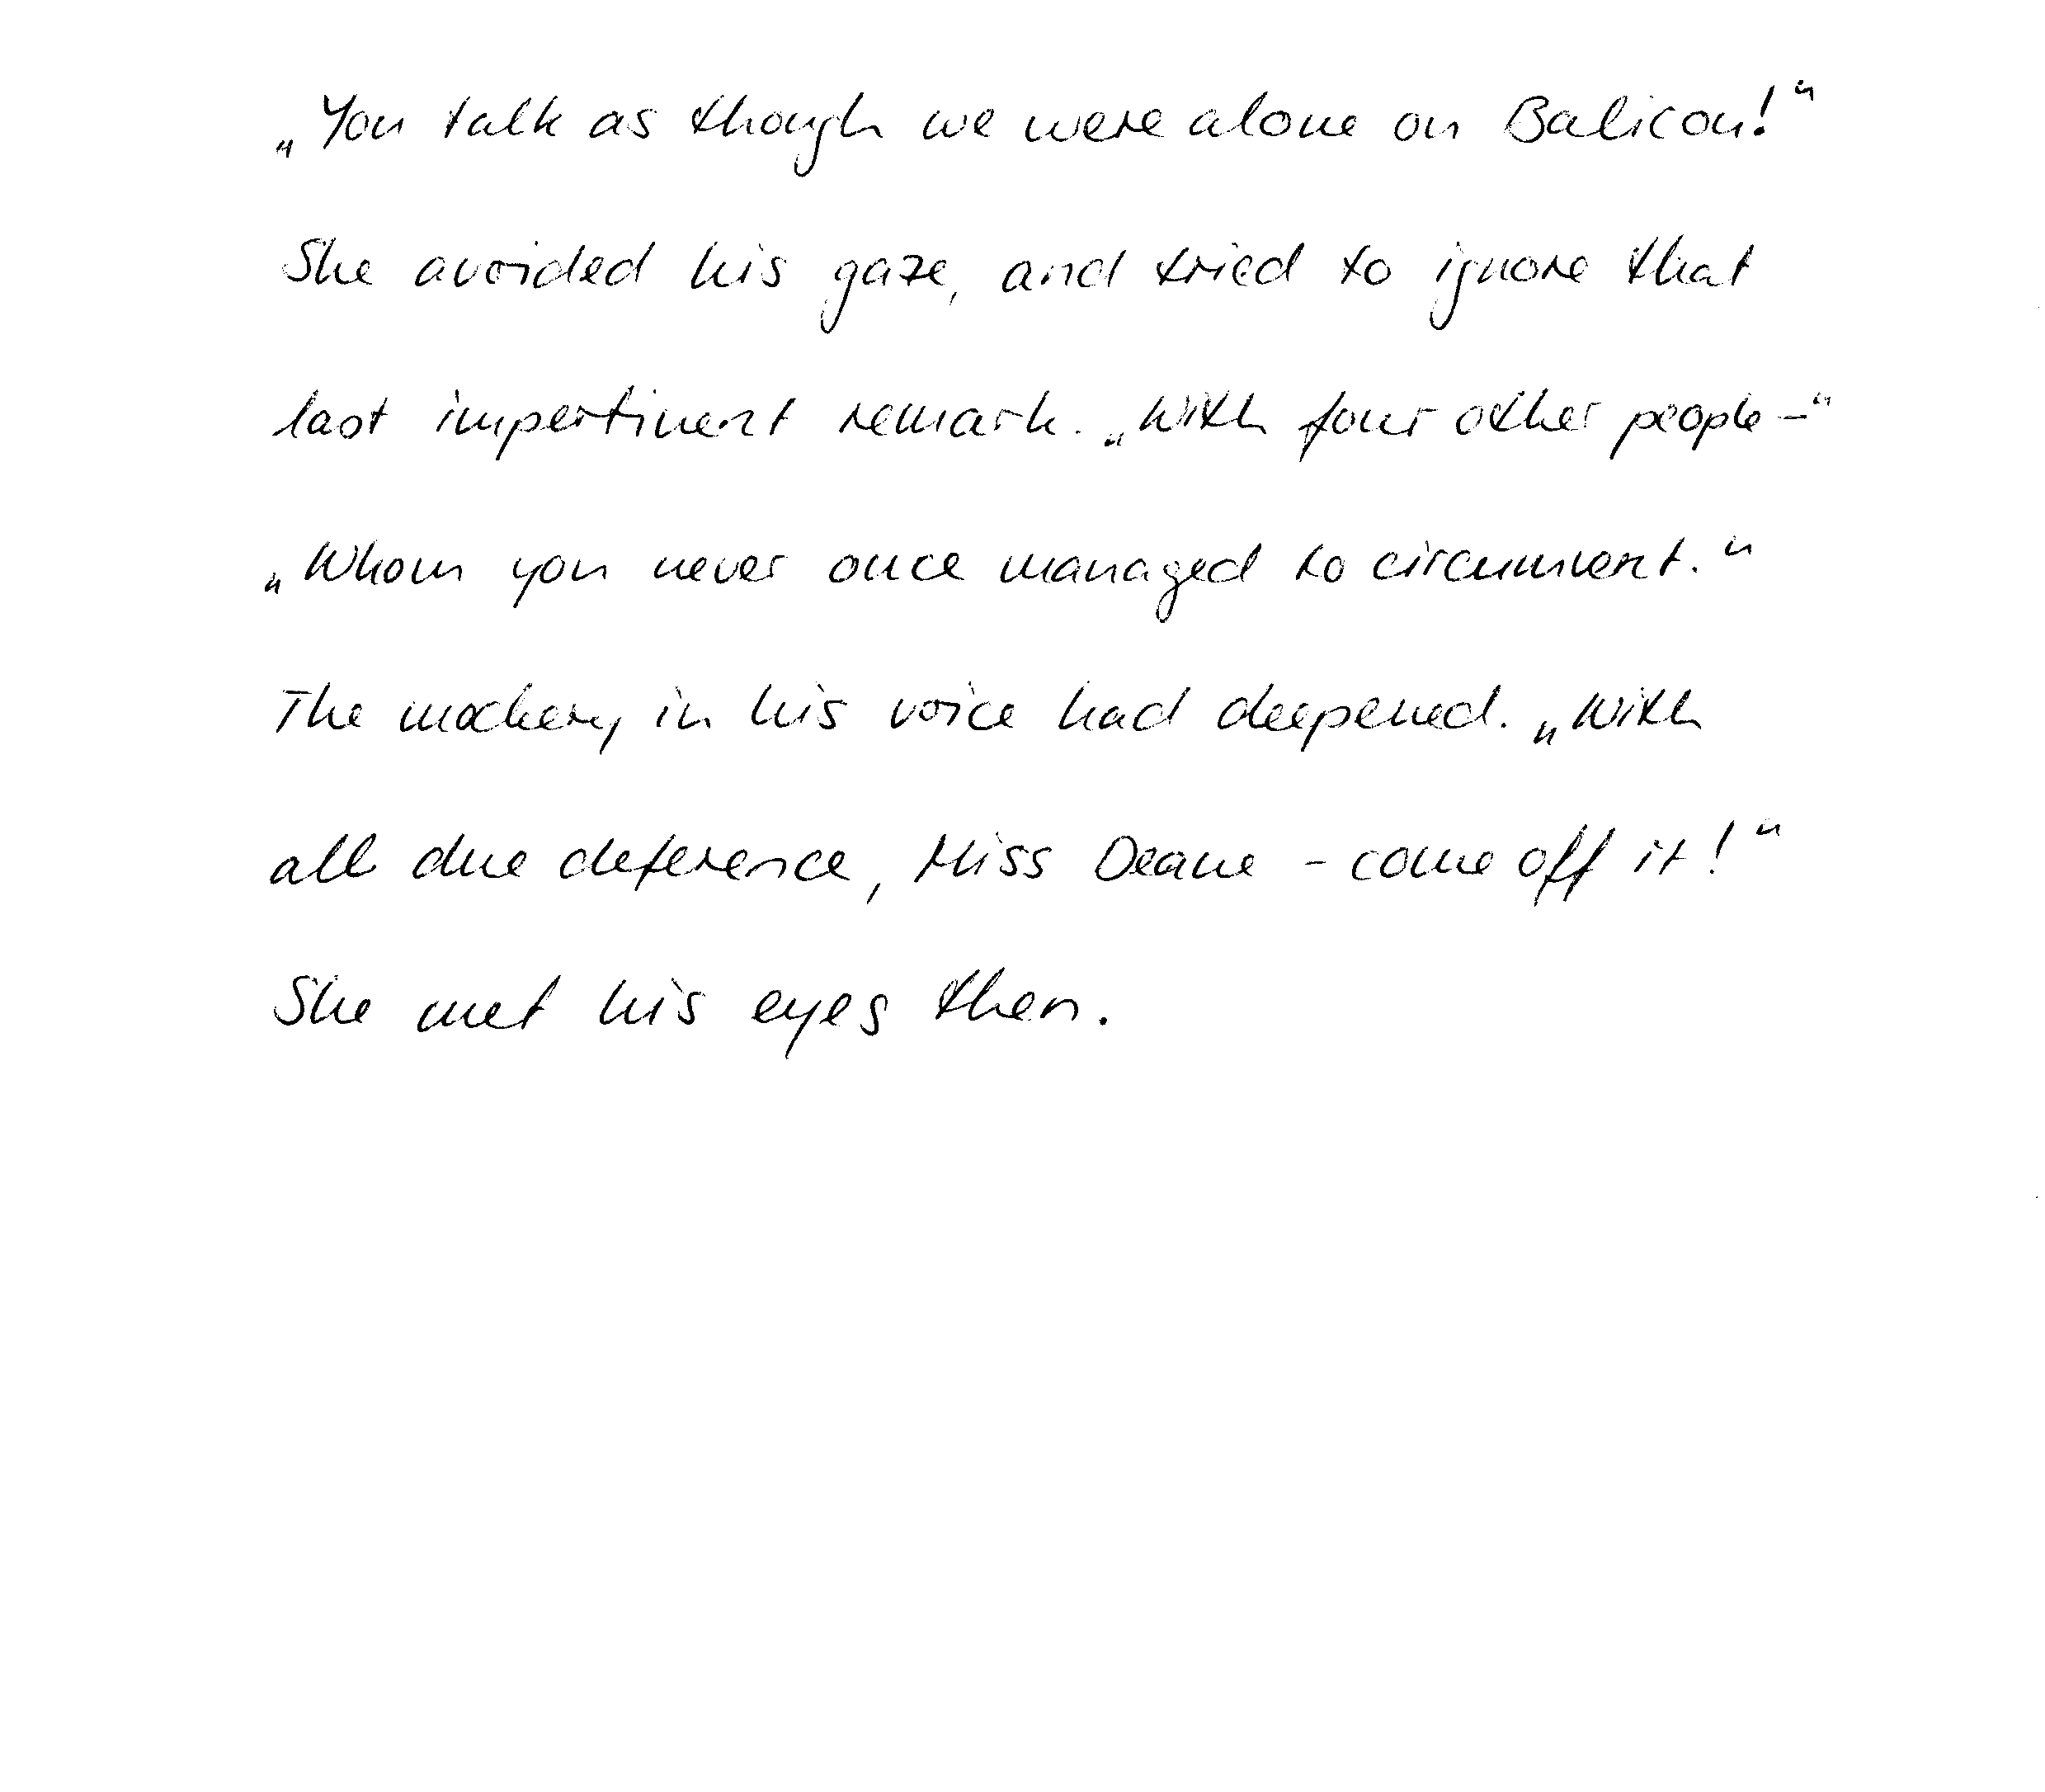 „You talk as though we were alone on Balicou!“
She avoided his gaze, and tried to ignore that
last impertinent remark. „With four other people –“
„Whom you never once managed to circumvent.“
The mockery in his voice had deepened. „With
all due deference, Miss Deane – come off it!“
She met his eyes then.